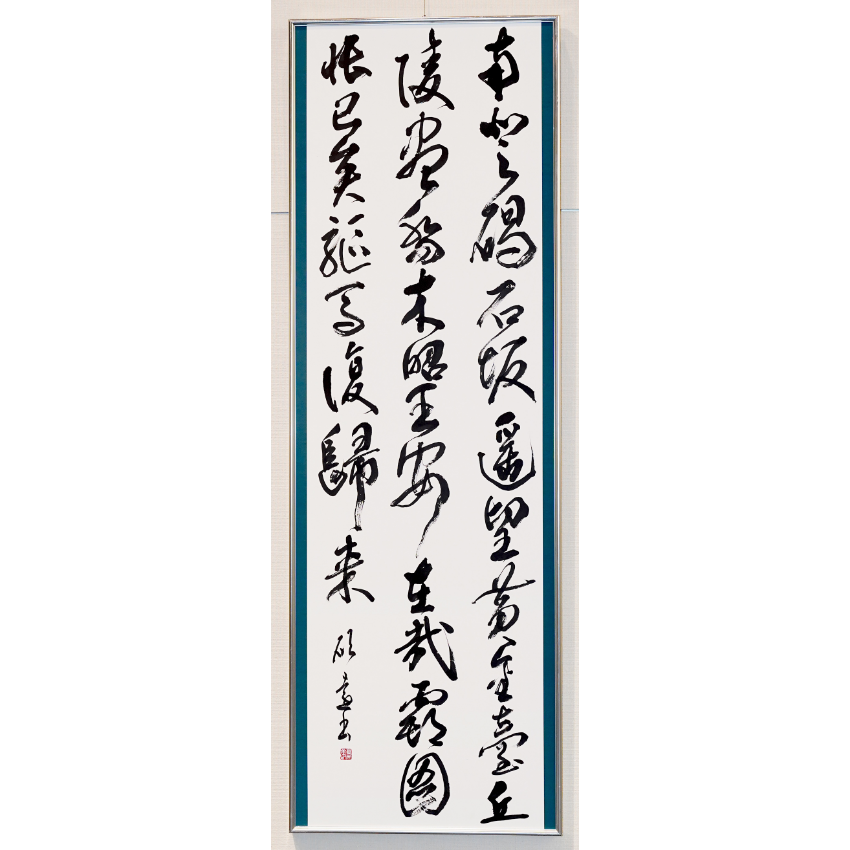 南登碣石坂遙望黄金臺丘
陵盡喬木昭王安在哉霸圖
悵已矣驅馬復歸來
書